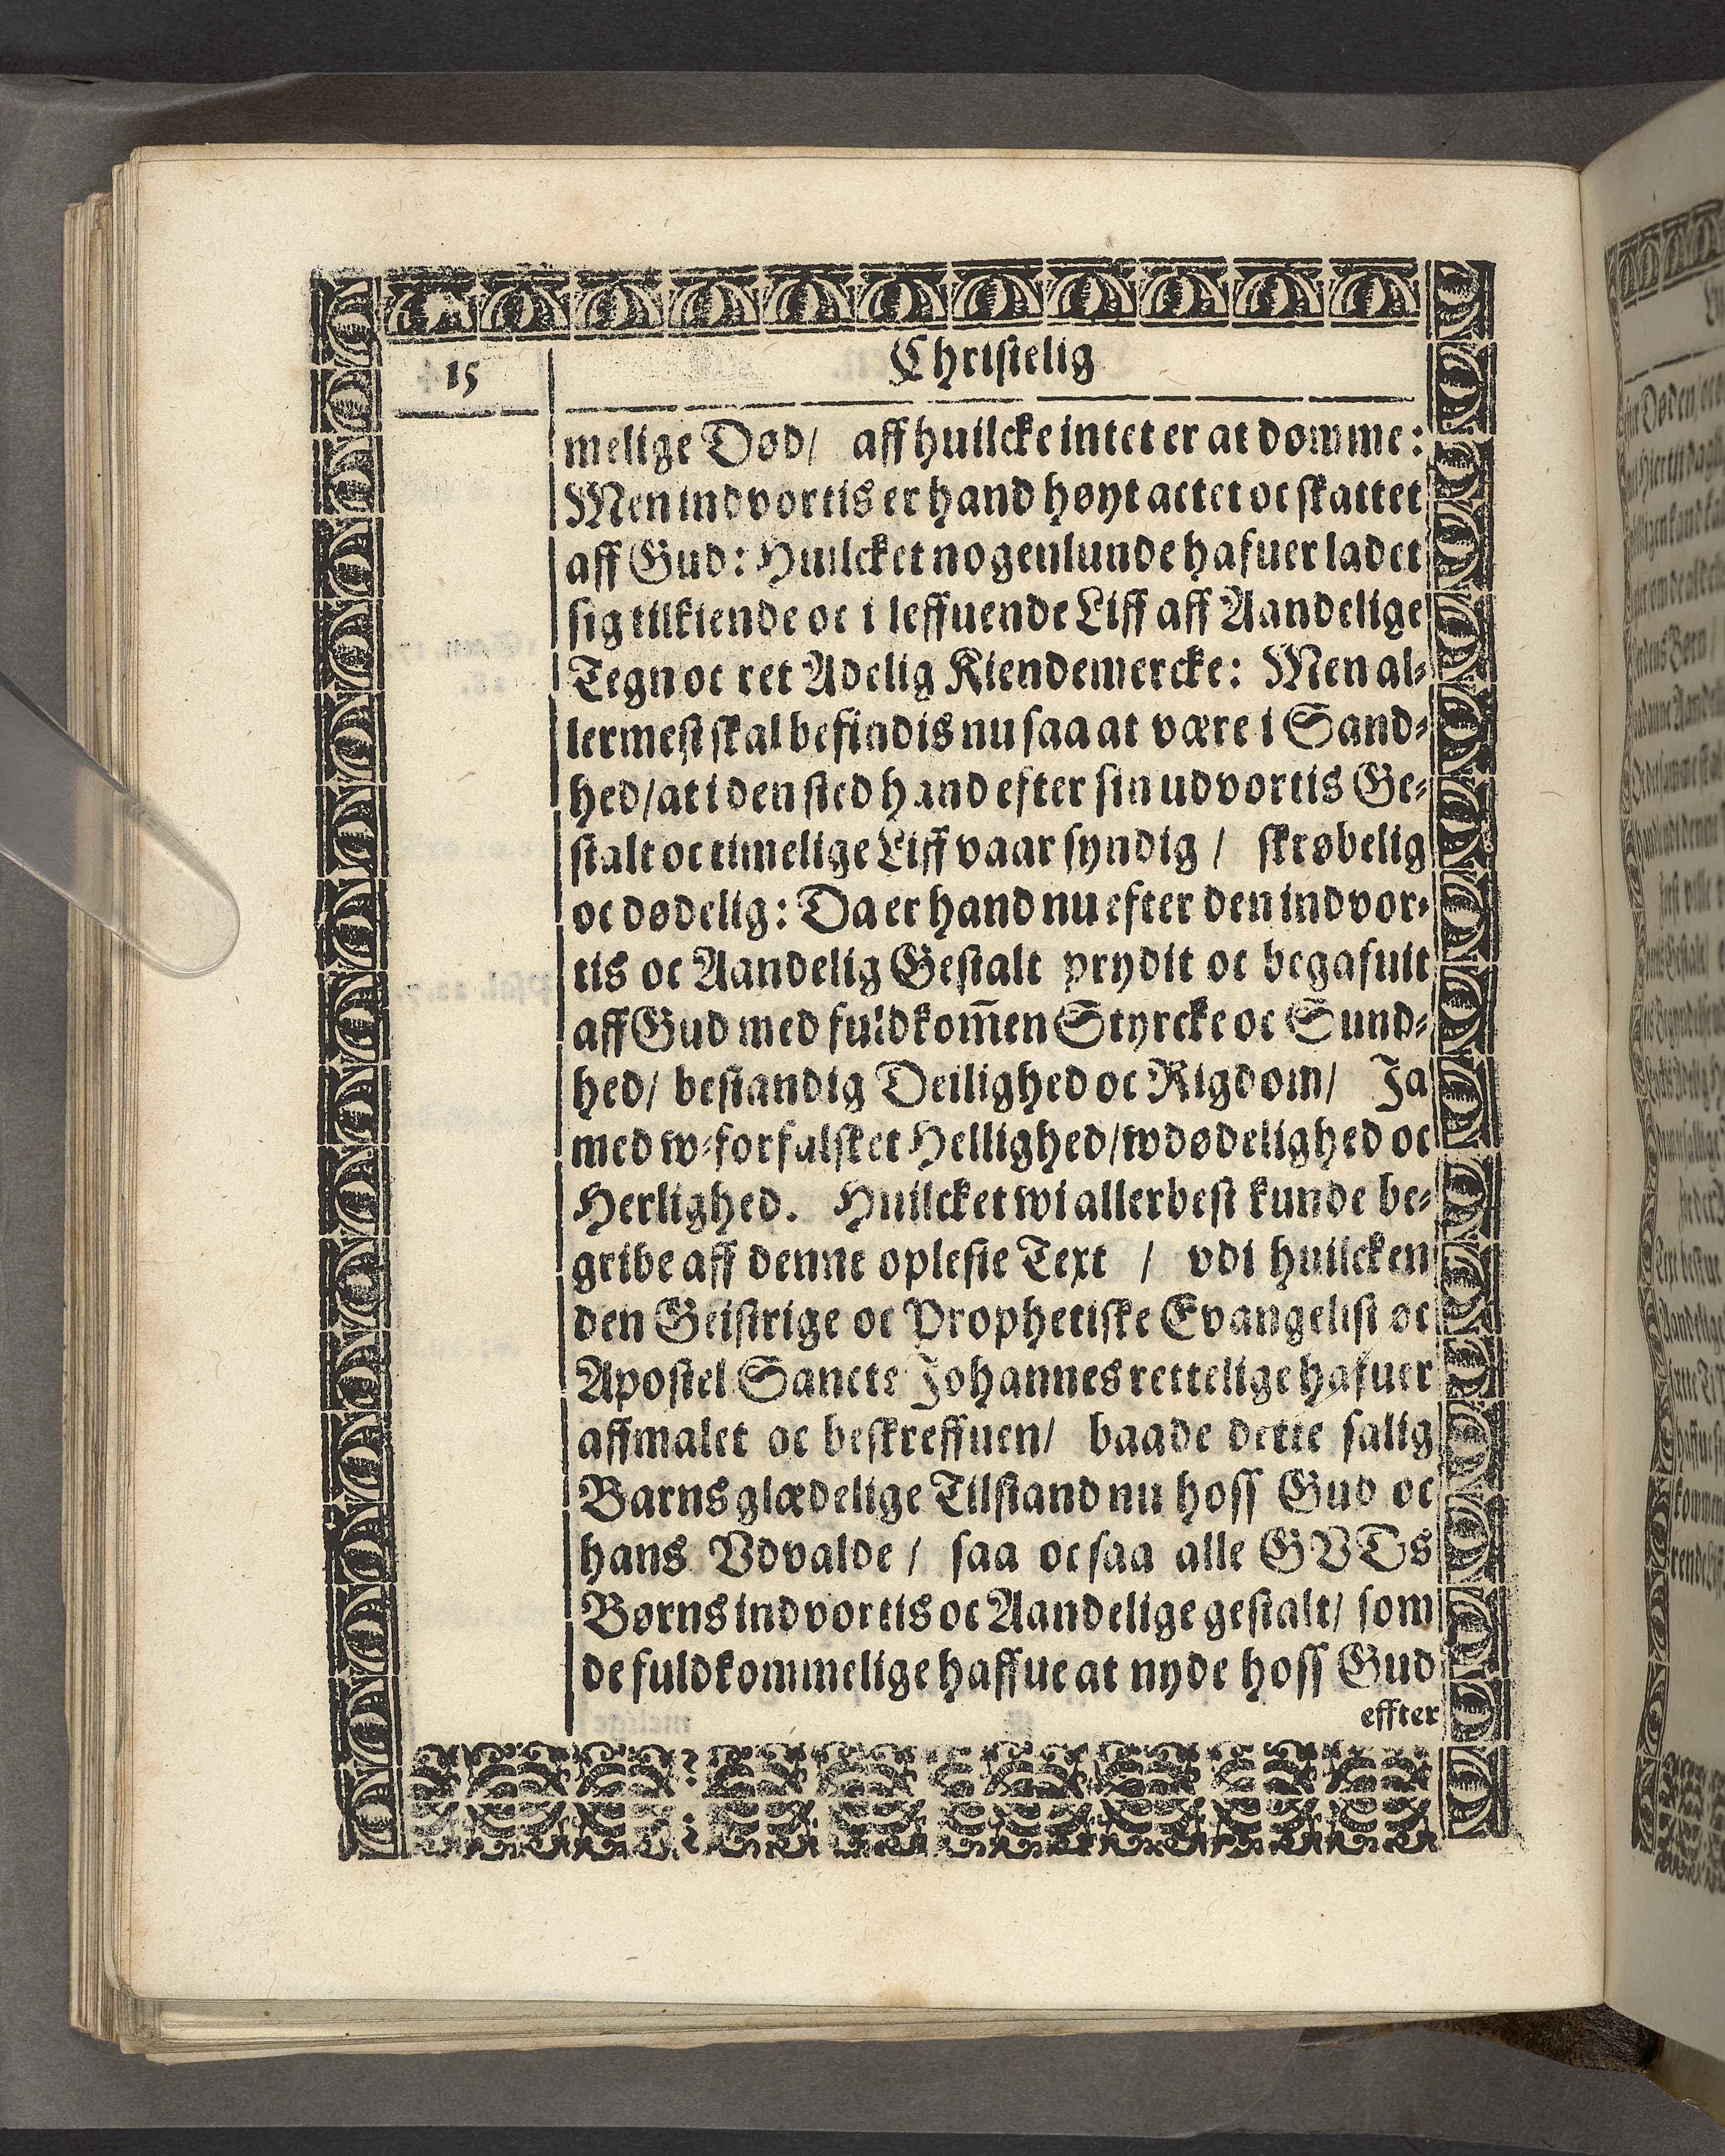 15
Christelig
melige Død/ aff huilcke intet er at dømme:
Men indvortis er hand høyt actet oc skattet
aff Gud: Huilcket nogenlunde hafuer ladet
sig tilkiende oc i leffuende Liff aff Aandelige
Tegn oc ret Adelig Kiendemercke: Men al-
lermest skal befindis nu saa at være i Sand-
hed/ at i den sted hand efter sin udvortis Ge-
stalt oc timelige Liff vaar syndig / skrøbelig
oc dødelig: Da er hand nu efter den indvor-
tis oc Aandelig Gestalt prydit oc begafuit
aff Gud med fuldkom̃en Styrcke oc Sund-
hed/ bestandig Deilighed oc Rigdom/ Ja
med w-forfalsket Hellighed/ wdødelighed oc
Herlighed. Huilcket wi allerbest kunde be-
gribe aff denne oplesie Text / vdi huilcken
den Geistrige oc Prophetiske Evangelist oc
Apostel Sancte Johannes rettelige hafuer
affmalet oc beskreffuen/ baade dette salig
Barns glædelige Tilstand nu hoss Gud oc
hans Vdvalde / saa oc saa alle GVDs
Børns indvortis oc Aandelige gestalt/ som
de fuldkommelige haffue at nyde hoss Gud
effter